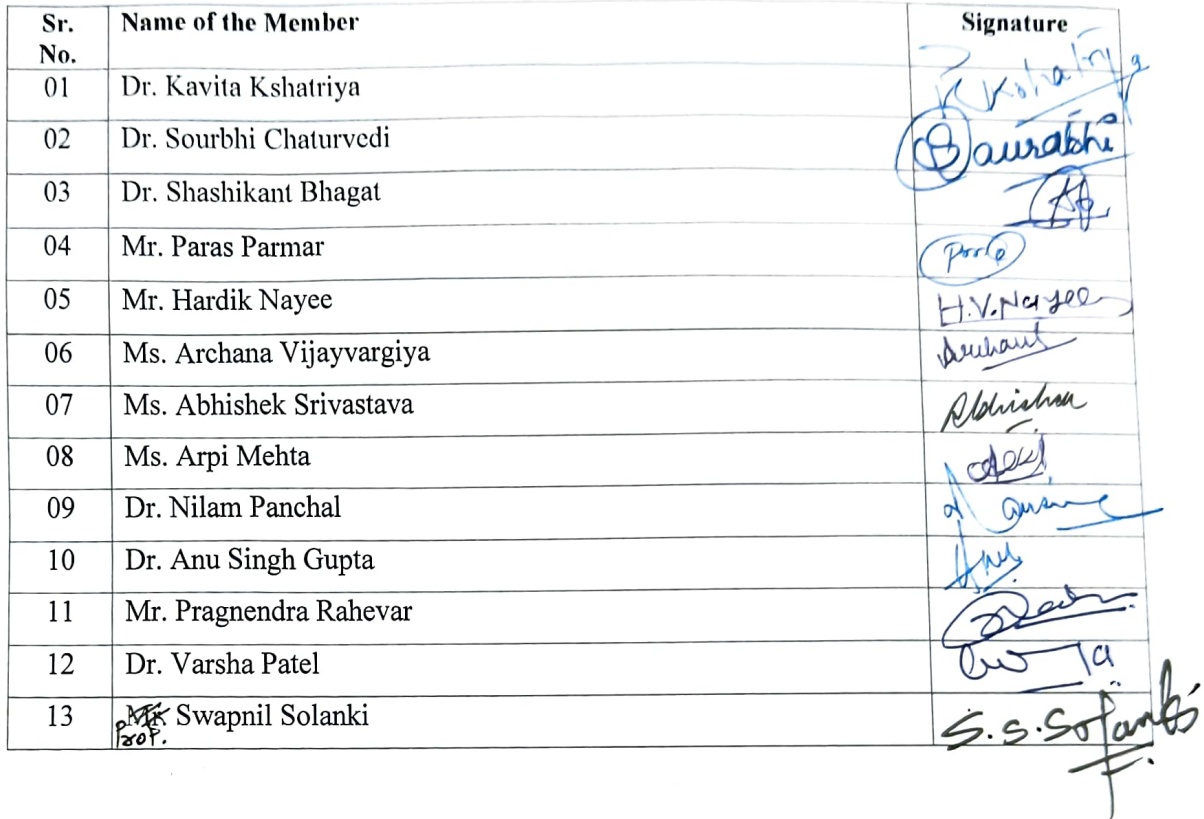 Sr. No. Name of the Member Signature
01 Dr. Kavita Kshatriya K Kshatriya
02 Dr. Sourbhi Chaturvedi Saurabhi
03 Dr. Shashikant Bhagat
04 Mr. Paras Parmar
05 Mr. Hardik Nayee H.V.Nayee
06 Ms. Archana Vijayvargiya
07 Ms. Abhishek Srivastava
08 Ms. Arpi Mehta
09 Dr. Nilam Panchal
10 Dr. Anu Singh Gupta Anu
11 Mr. Pragnendra Rahevar
12 Dr. Varsha Patel
13 Mr. Swapnil Solanki S.S.Solanki
Prof.